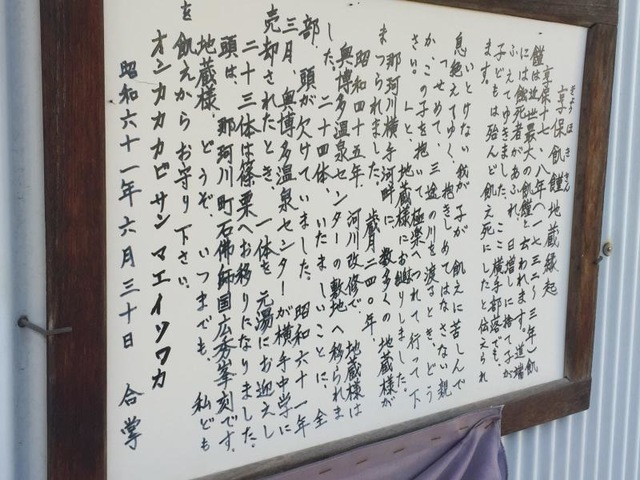 きょうほききん
享保飢饉地蔵縁起
享保十七、八年(一七三二〜三年)飢
饉は近世最大の飢饉と云われます。道端
には餓死者があふれ、日増しに捨て子が
ふえてゆきました。ここ横手部落でも、
子どもは殆んど飢え死にしたと伝えられ
ます。
いとけない我が子が、飢えに苦しんで
息絶えてゆく、抱きしめてはなさない親
が、この子を抱いて極楽へつれて行って下
さい。」と、地蔵様にお縋りしました。
那珂川横手河畔に、数多くの地蔵様が
まつられました。歳月二四〇年、
昭和四十五年、河川改修で、地蔵様は
奥博多温泉センターの敷地へ移られま
した。二十四体、いたましいことに、全
部、頭が欠けていました。昭和六十一年
三月、奥博多温泉センターが横手中学に
売却されたとき、一体を元湯にお迎えし
二十三体は篠栗へお移りになりました。
頭は、那珂川町石佛師国広秀峯刻です。
地蔵様、どうぞ、いつまでも、私ども
を飢えからお守り下さい。
オンカカカビサンマエイソワカ
昭和六十一年六月三十日 合掌